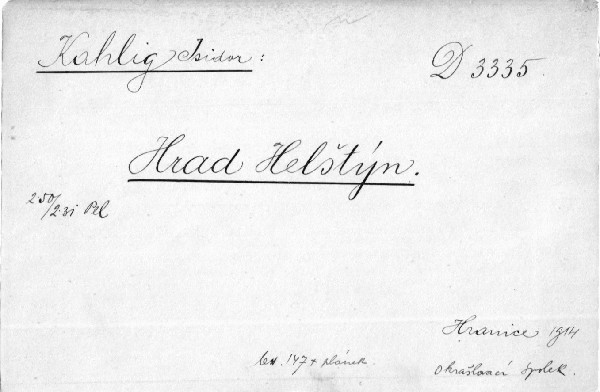 Kahlig Isidor:
D 3335.
Hrad Helštýn.
250/231 Pel
Hranice 1914
147 + plánek.
okrašlovací spolek.